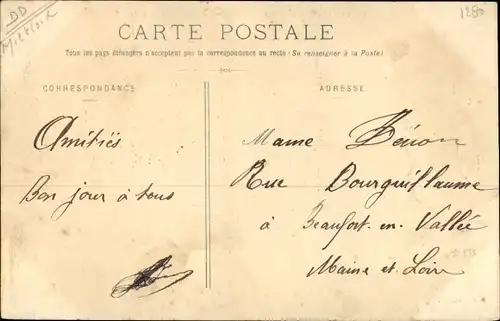 DD
128
CARTE POSTALE
Tous les pays étrangers n'acceptent pas la correspondance au recto (Se renseigner à la Poste)
CORRESPONDANCE
ADRESSE
Amitiés
Bon jour à tous
Mame
Rue Bourguillaume
à Beaufort-en-Vallée
Maine et Loire